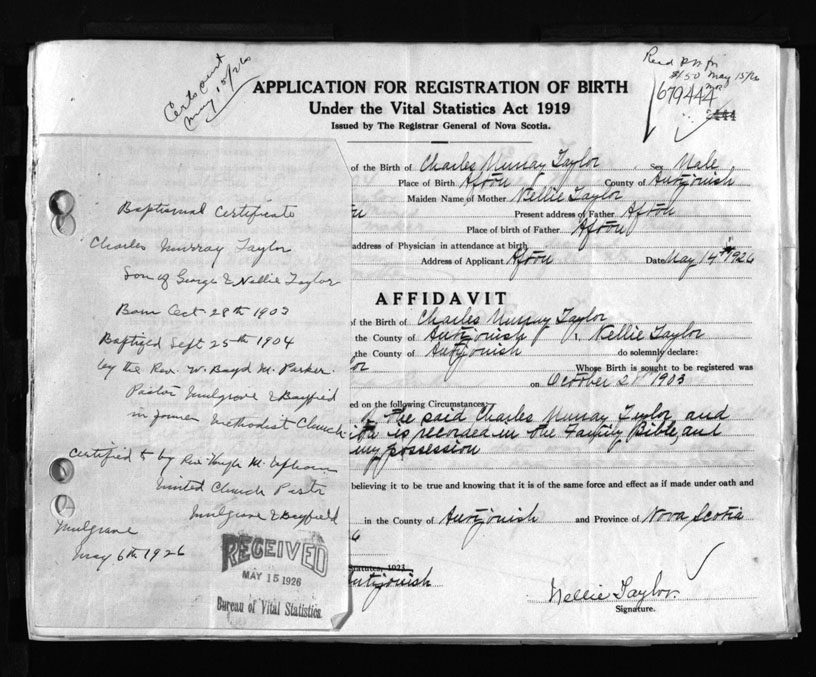 Certs sent
May 15/26
Recd
$1.50 May 15/26
679444
444
APPLICATION FOR REGISTRATION OF BIRTH
Under the Vital Statistics Act 1919
Issued by The Registrar General of Nova Scotia.
of the Birth of Charles Murray Taylor Sex Male
Place of Birth Afton County of Antigonish
Maiden Name of Mother Nellie Taylor
Present address of Father Afton
Place of birth of Father Afton
address of Physician in attendance at birth
Address of Applicant Afton Date May 14th 1926
AFFIDAVIT
of the Birth of Charles Murray Taylor
the County of Antigonish I, Nellie Taylor
the County of Antigonish do solemnly declare:
Whose Birth is sought to be registered was
on October 28 1903
ed on the following Circumstances:
the said Charles Murray Taylor and
is recorded in the Family Bible and
my possession
believing it to be true and knowing that it is of the same force and effect as if made under oath and
in the County of Antigonish and Province of Nova Scotia
6
Statutes, 1923
Antigonish
Nellie Taylor.
Signature.
Baptismal Certificate
Charles Murray Taylor
Son of George & Nellie Taylor
Born Oct 28th 1903
Baptized Sept 25th 1904
by the Rev. W. Boyd M. Parker
Pastor Mulgrave & Bayfield
in former Methodist Church
Certified to by Rev Hugh M. Upham
United Church Pastor
Mulgrave & Bayfield
Mulgrave
May 6th 1926
RECEIVED
MAY 15 1926
Bureau of Vital Statistics